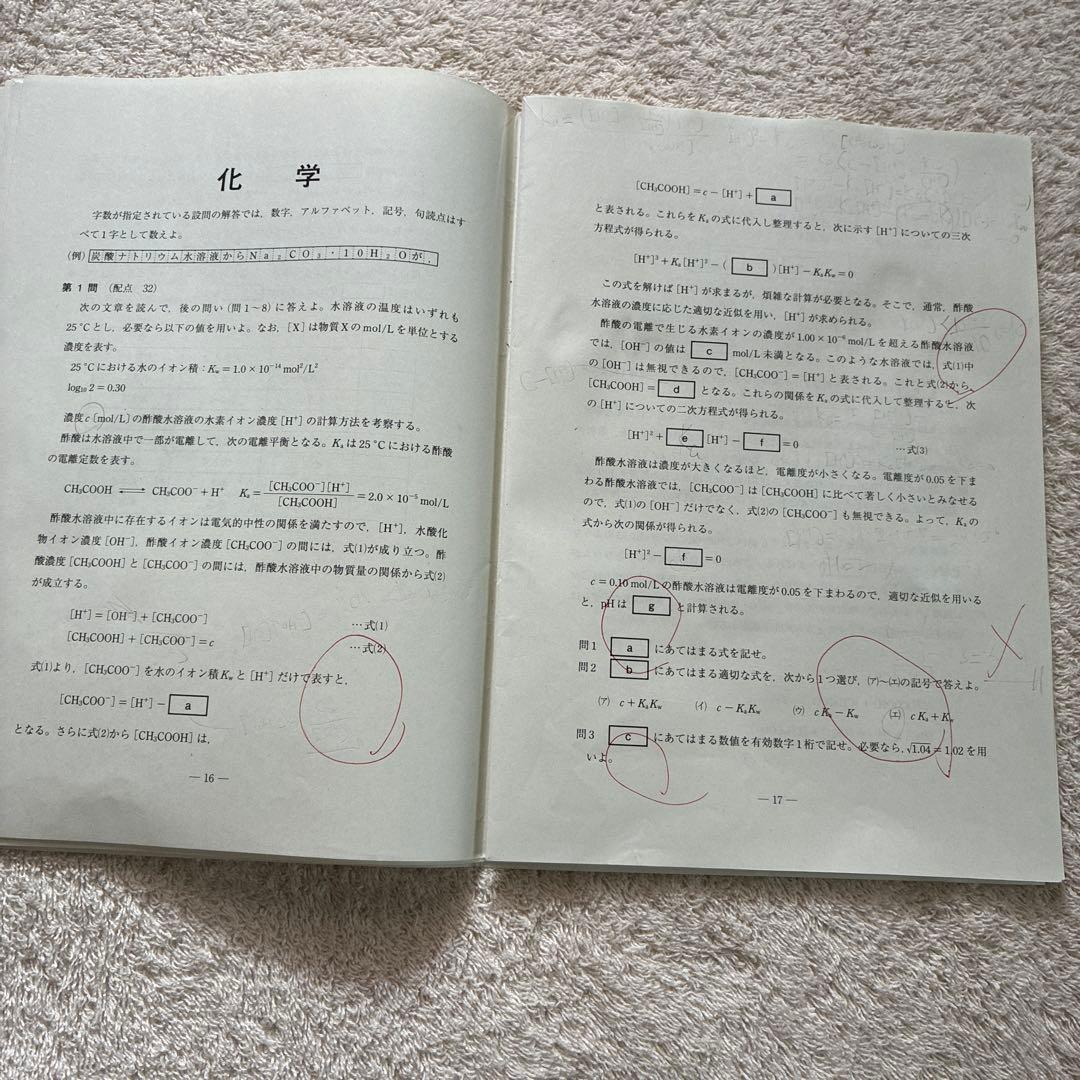 化学
字数が指定されている設問の解答では，数字，アルファベット，記号，句読点はす
べて1字として数えよ。
(例) 炭酸ナトリウム水溶液からNa₂CO₃・10H₂Oが，
第1問 (配点 32)
次の文章を読んで，後の問い(問1～8)に答えよ。水溶液の温度はいずれも
25℃とし，必要なら以下の値を用いよ。なお，[X]は物質Xのmol/Lを単位とする
濃度を表す。
25℃における水のイオン積：Kw＝1.0×10⁻¹⁴ mol²/L²
log₁₀2＝0.30
濃度c[mol/L]の酢酸水溶液の水素イオン濃度[H⁺]の計算方法を考察する。
酢酸は水溶液中で一部が電離して，次の電離平衡となる。Kaは25℃における酢酸
の電離定数を表す。
CH₃COOH ⇄ CH₃COO⁻＋H⁺ Ka＝[CH₃COO⁻][H⁺]/[CH₃COOH]＝2.0×10⁻⁵ mol/L
酢酸水溶液中に存在するイオンは電気的中性の関係を満たすので，[H⁺]，水酸化
物イオン濃度[OH⁻]，酢酸イオン濃度[CH₃COO⁻]の間には，式(1)が成り立つ。酢
酸濃度[CH₃COOH]と[CH₃COO⁻]の間には，酢酸水溶液中の物質量の関係から式(2)
が成立する。
[H⁺]＝[OH⁻]＋[CH₃COO⁻] …式(1)
[CH₃COOH]＋[CH₃COO⁻]＝c …式(2)
式(1)より，[CH₃COO⁻]を水のイオン積Kwと[H⁺]だけで表すと，
[CH₃COO⁻]＝[H⁺]－ a
となる。さらに式(2)から[CH₃COOH]は，
―16―
[CH₃COOH]＝c－[H⁺]＋ a
と表される。これらをKaの式に代入し整理すると，次に示す[H⁺]についての三次
方程式が得られる。
[H⁺]³＋Ka[H⁺]²－( b )[H⁺]－KaKw＝0
この式を解けば[H⁺]が求まるが，煩雑な計算が必要となる。そこで，通常，酢酸
水溶液の濃度に応じた適切な近似を用い，[H⁺]が求められる。
酢酸の電離で生じる水素イオンの濃度が1.00×10⁻⁶ mol/Lを超える酢酸水溶液
では，[OH⁻]の値は c mol/L未満となる。このような水溶液では，式(1)中
の[OH⁻]は無視できるので，[CH₃COO⁻]＝[H⁺]と表される。これと式(2)から，
[CH₃COOH]＝ d となる。これらの関係をKaの式に代入して整理すると，次
の[H⁺]についての二次方程式が得られる。
[H⁺]²＋ e [H⁺]－ f ＝0 …式(3)
酢酸水溶液は濃度が大きくなるほど，電離度が小さくなる。電離度が0.05を下ま
わる酢酸水溶液では，[CH₃COO⁻]は[CH₃COOH]に比べて著しく小さいとみなせる
ので，式(1)の[OH⁻]だけでなく，式(2)の[CH₃COO⁻]も無視できる。よって，Kaの
式から次の関係が得られる。
[H⁺]²－ f ＝0
c＝0.10 mol/Lの酢酸水溶液は電離度が0.05を下まわるので，適切な近似を用いる
と，pHは g と計算される。
問1 a にあてはまる式を記せ。
問2 b にあてはまる適切な式を，次から1つ選び，(ア)～(エ)の記号で答えよ。
(ア) c＋KaKw (イ) c－KaKw (ウ) cKa－Kw (エ) cKa＋Kw
問3 c にあてはまる数値を有効数字1桁で記せ。必要なら，√1.04＝1.02を用
いよ。
―17―